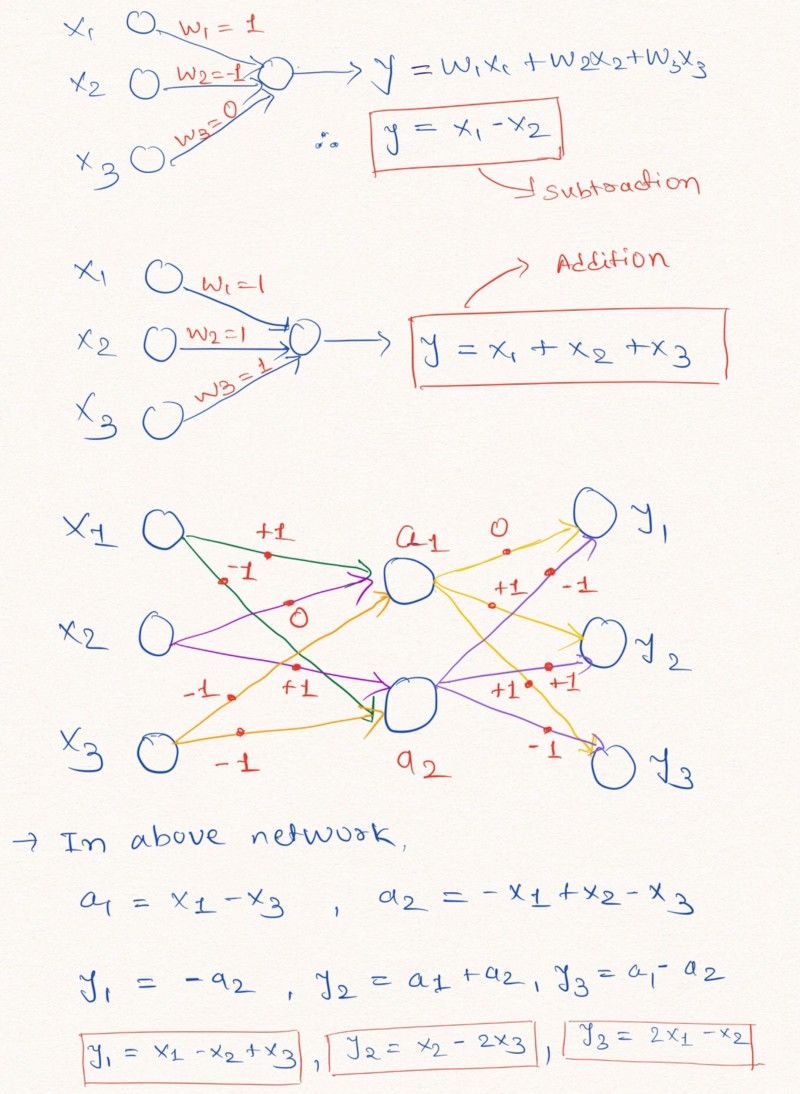 x₁ w₁ = 1
x₂ w₂=-1 → y = w₁x₁ + w₂x₂+w₃x₃
x₃ w₃=0 ∴ y = x₁ -x₂
Subtraction
Addition
x₁ w₁=1
x₂ w₂=1 → y = x₁ + x₂ +x₃
x₃ w₃=1
x1 +1 a1 0 y₁
-1 +1 -1
x2 0 y2
-1 +1 +1 +1
x3 -1 a2 -1 y3
→ In above network,
a₁ = x1 -x3 , a2 = -x1 +x2 -x3
y₁ = -a2 , y2 = a1 +a2 , y3 = a₁- a2
y₁ = x1 -x2 +x3 , y2 = x2 - 2x3 , y3 = 2x1 -x2